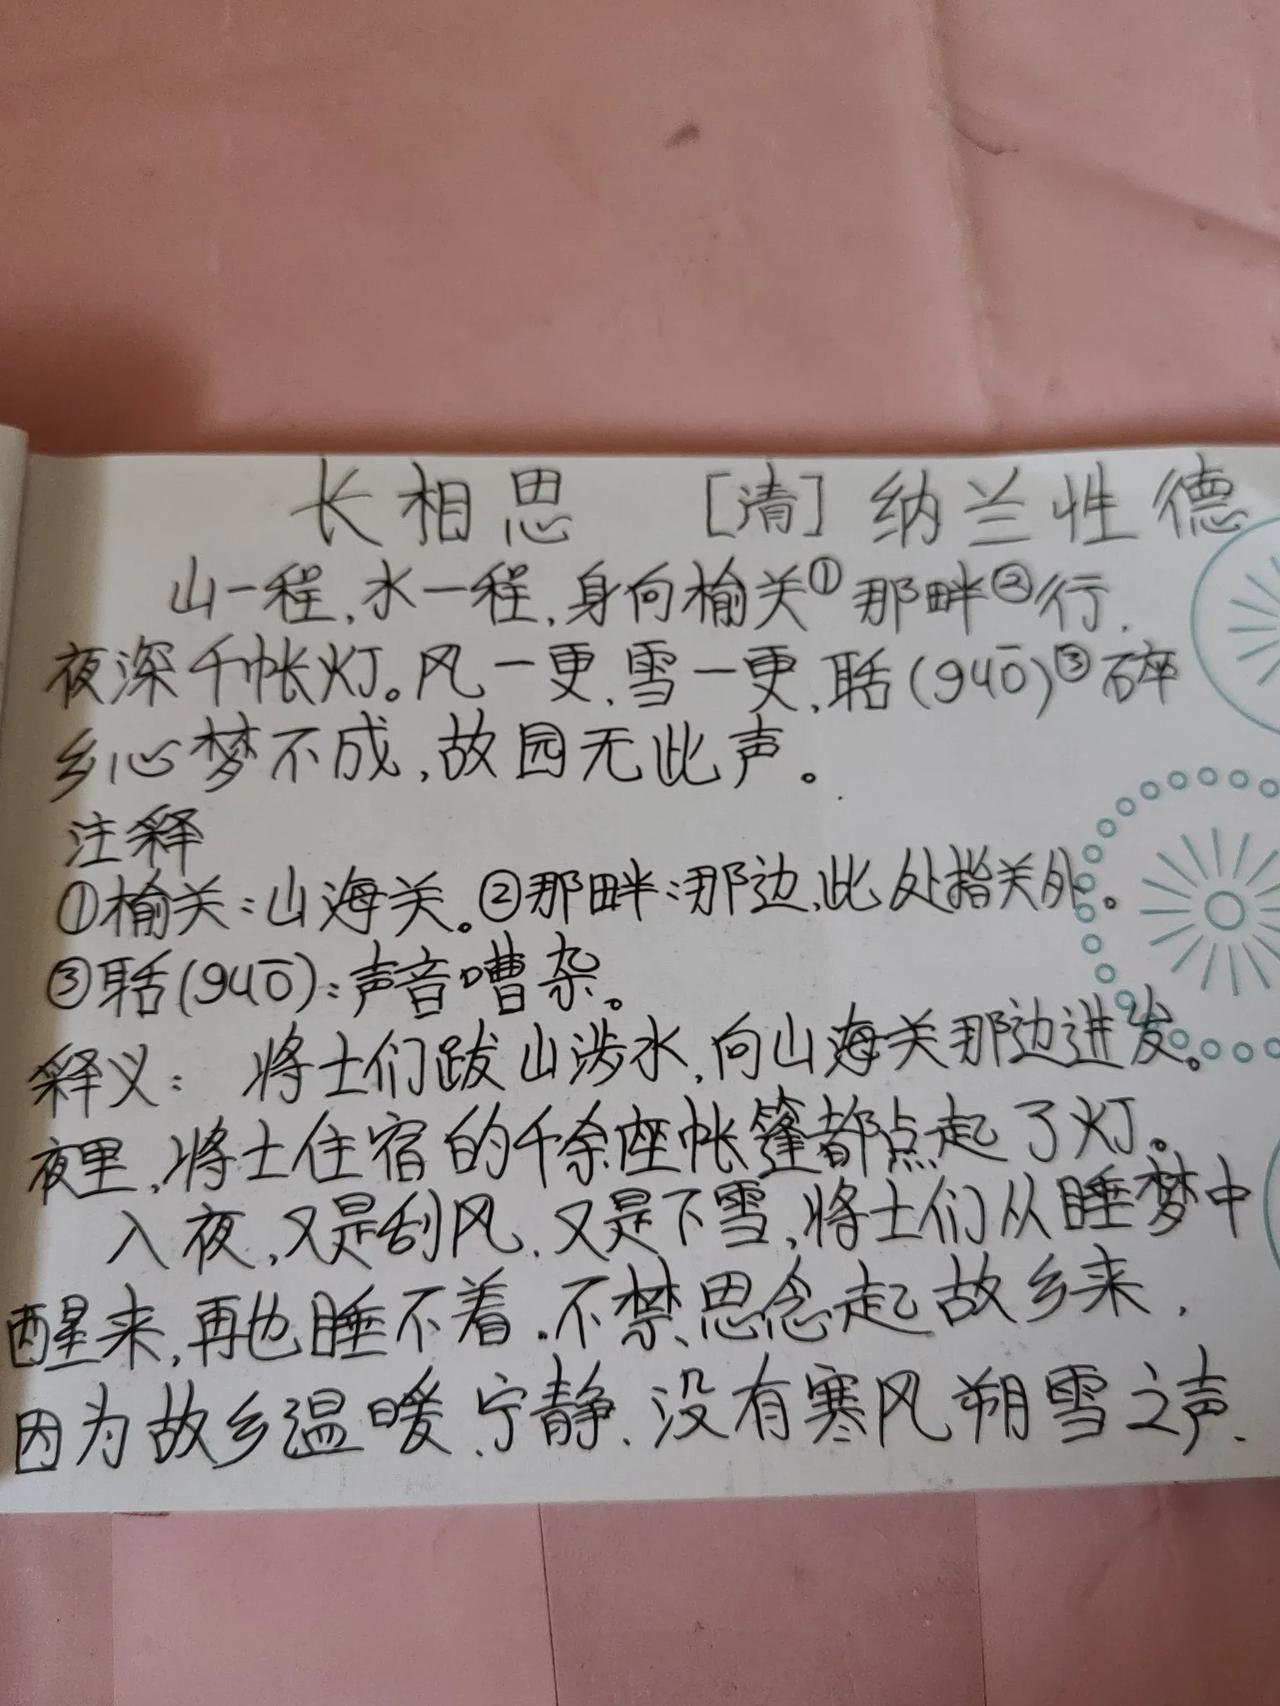 长相思 [清] 纳兰性德
山一程,水一程,身向榆关①那畔②行,
夜深千帐灯。风一更,雪一更,聒(guō)③碎
乡心梦不成,故园无此声。
注释
①榆关:山海关。②那畔:那边,此处指关外。
③聒(guō):声音嘈杂。
释义: 将士们跋山涉水,向山海关那边进发。
夜里,将士住宿的千余座帐篷都点起了灯。
入夜,又是刮风,又是下雪,将士们从睡梦中
醒来,再也睡不着,不禁思念起故乡来,
因为故乡温暖、宁静、没有寒风朔雪之声.